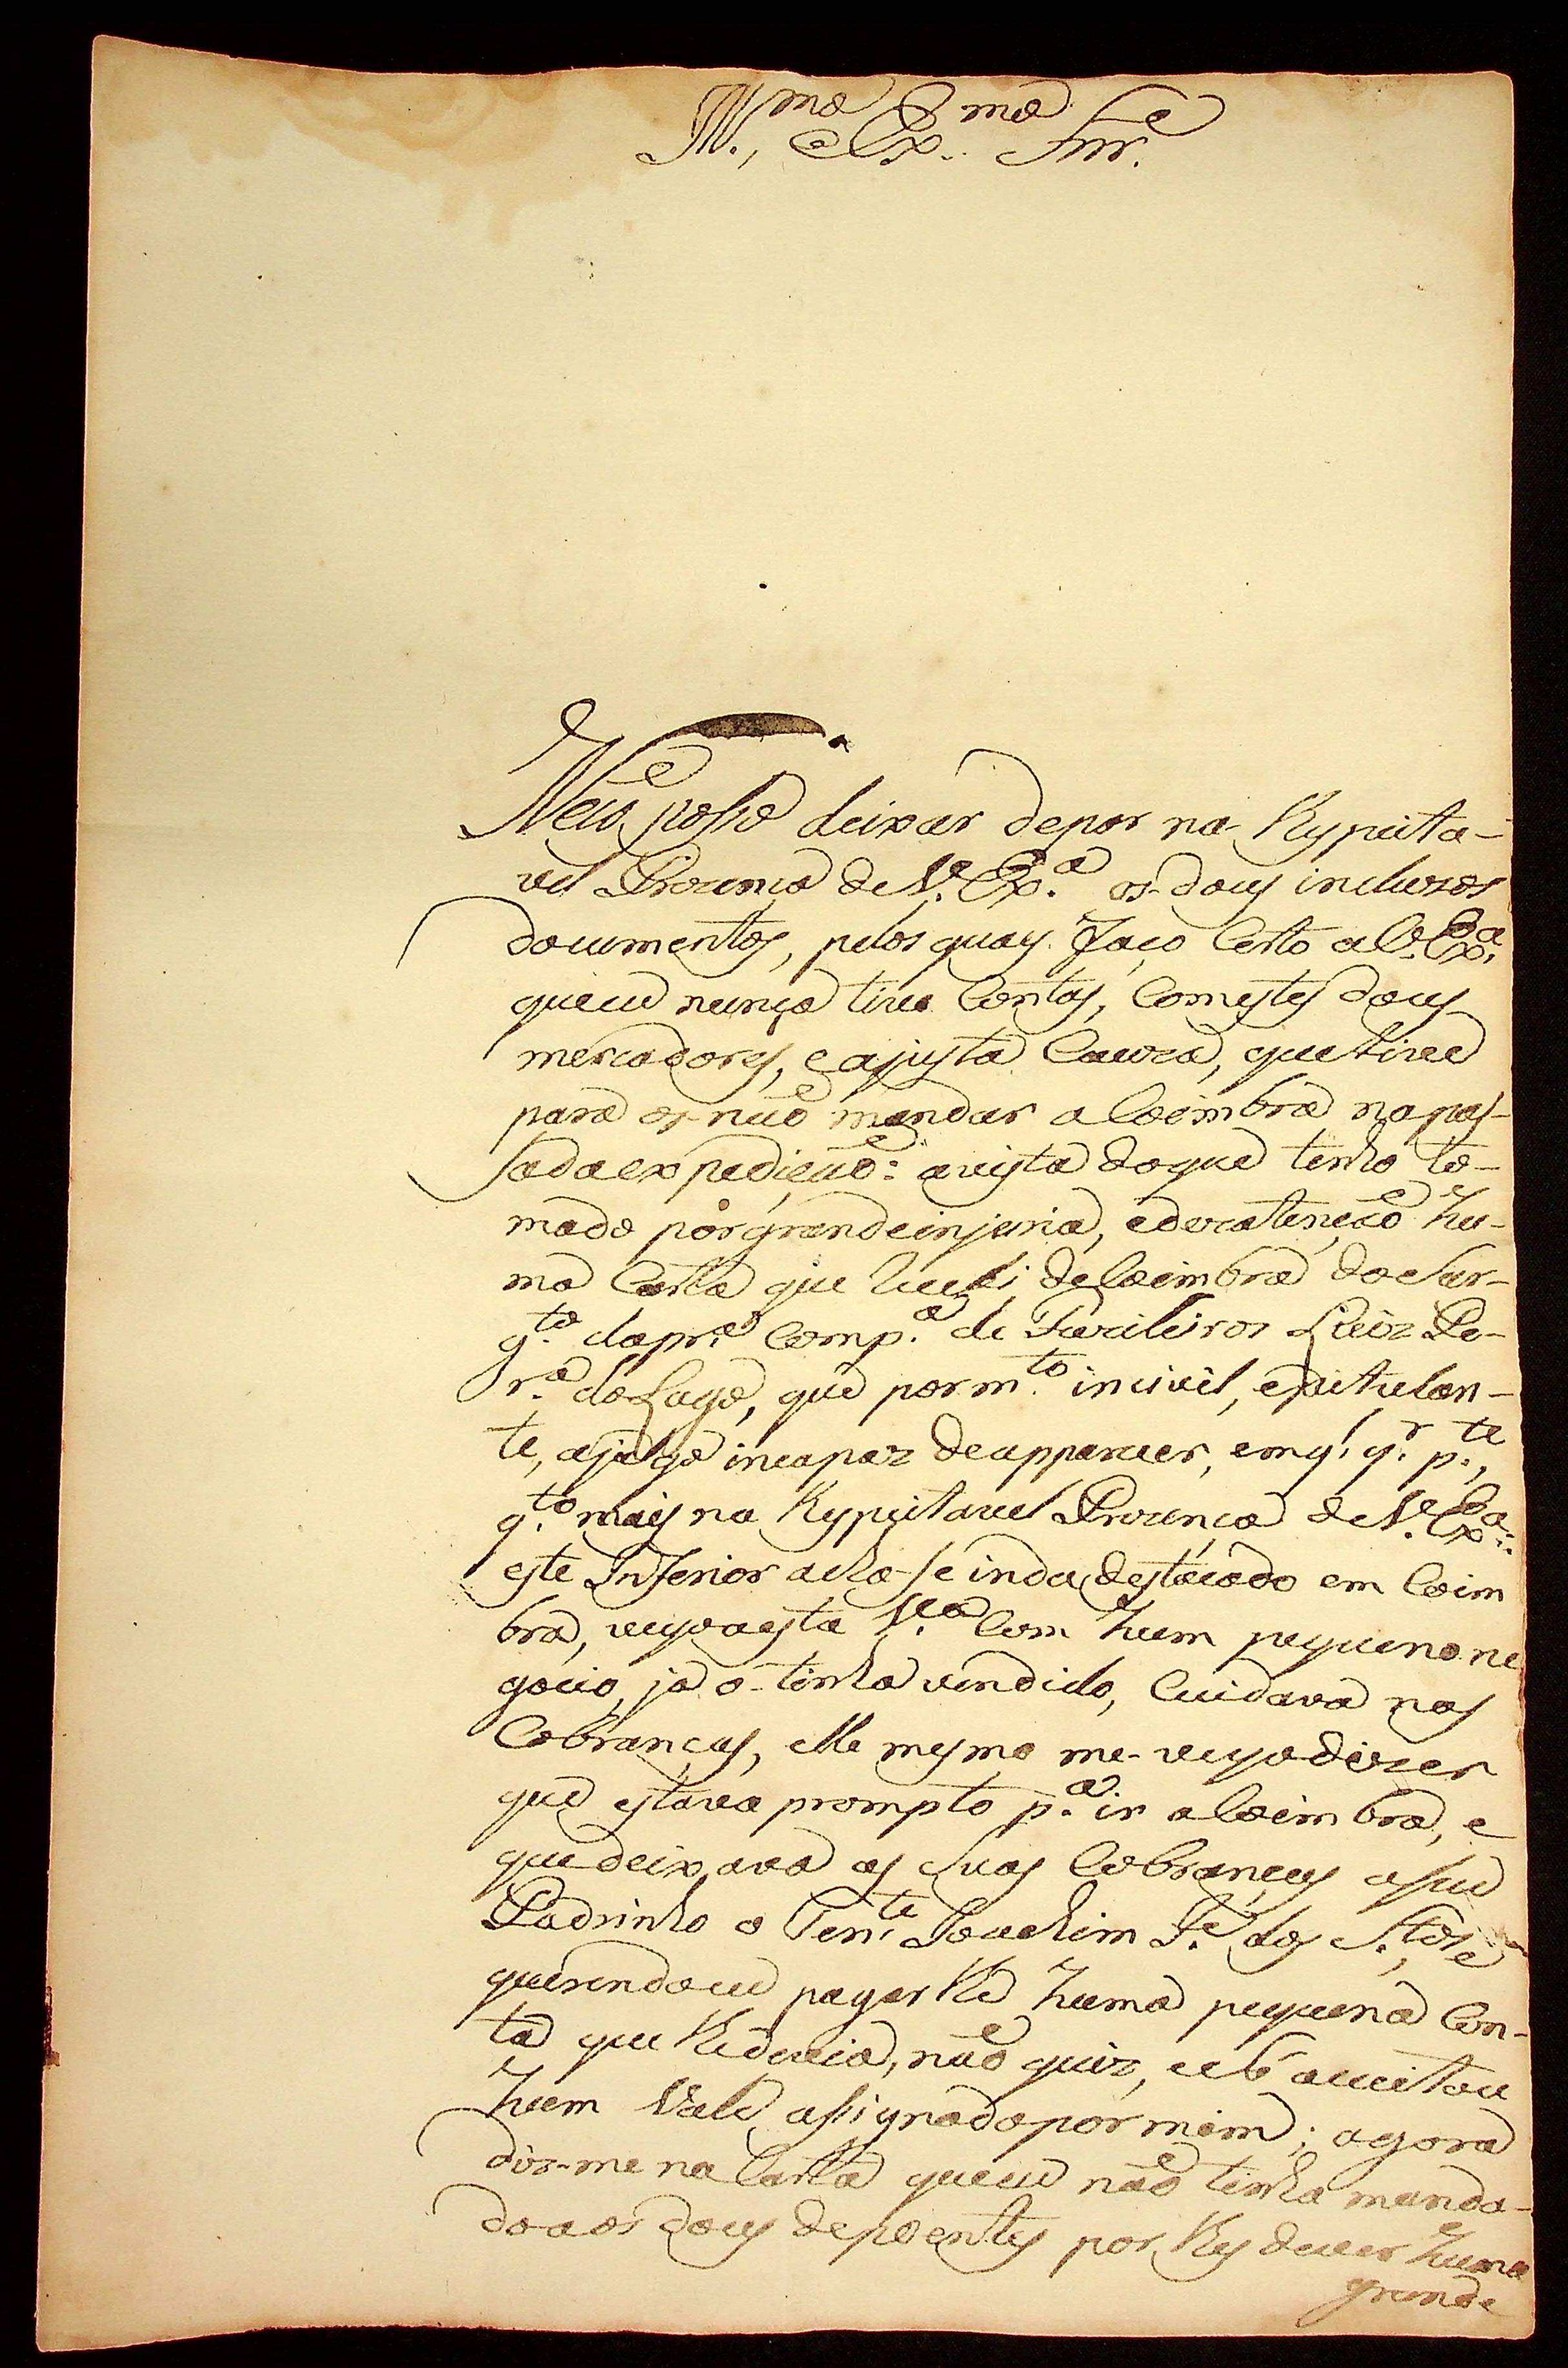 Ill.mo, e Ex.mo Snr.
Não posso deixar depor na Respeita-
vel Prezença de V. Ex.a os-dous incluzos
documentos, pelos quaes faço Certo a V. Ex.a
queeu nunca tive Contas, Comestes dous
mercadores, e ajusta Cauza, que tive
para os-não mandar a Coimbra napas-
sadaexpedição: avista doque tenho to-
mado porgrandeinjuria, edezatenção hu-
ma Carta que recebi deCoimbra do Sar-
g.to dapr.a Comp.a de Fuzileiros Luiz Pe-
r.a do Lago, que porm.to incivil, epitulan-
te, ajulgo incapaz deapparecer, emq.l q.r p.te,
q.to mais na Respeitavel Prezença de V. Ex.a:
este Inferior acha-se inda destacado em Coim
bra, veyoaesta V.a Com hum pequenone
gocio, ja o-tinha vendido, Cuidava nas
Cobranças, elle mesmo me-veyodizer
que estava prompto p.a ir aCoimbra, e
quedeixava as suas Cobranças aseu
Padrinho o Ten.te Joachim J.e dos S.tos e
querendoeu pagarlhe huma pequena Con-
ta que lhedevia, não quiz, esó aceitou
hum Vale assignadopormim; agora
diz-me na Carta queeu não tinha manda-
doaos dous depoentes por lhes dever huma
grande